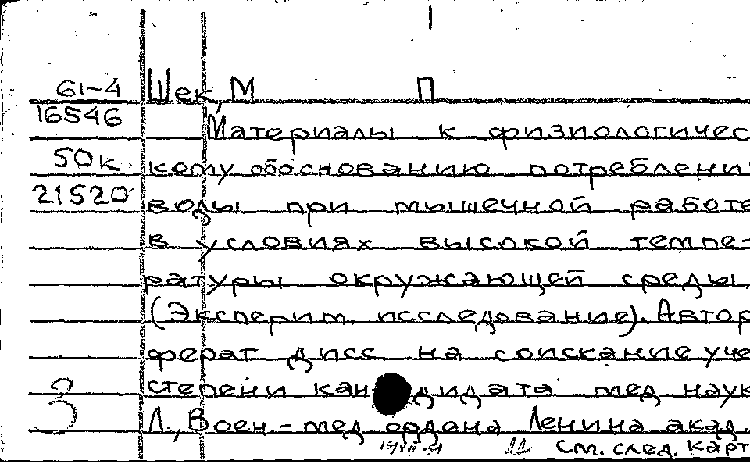 61-4 Шек, М П
16546 Материалы к физиологичес
50к кому обоснованию потреблени
21520 воды при мышечной работе
в условиях высокой темпе-
ратуры окружающей среды.
(Эксперим. исследование). Автор
ферат дисс на соискание уче
степени кандидата мед наук
3 Л., Воен.-мед ордена Ленина акад.
См. след. карт